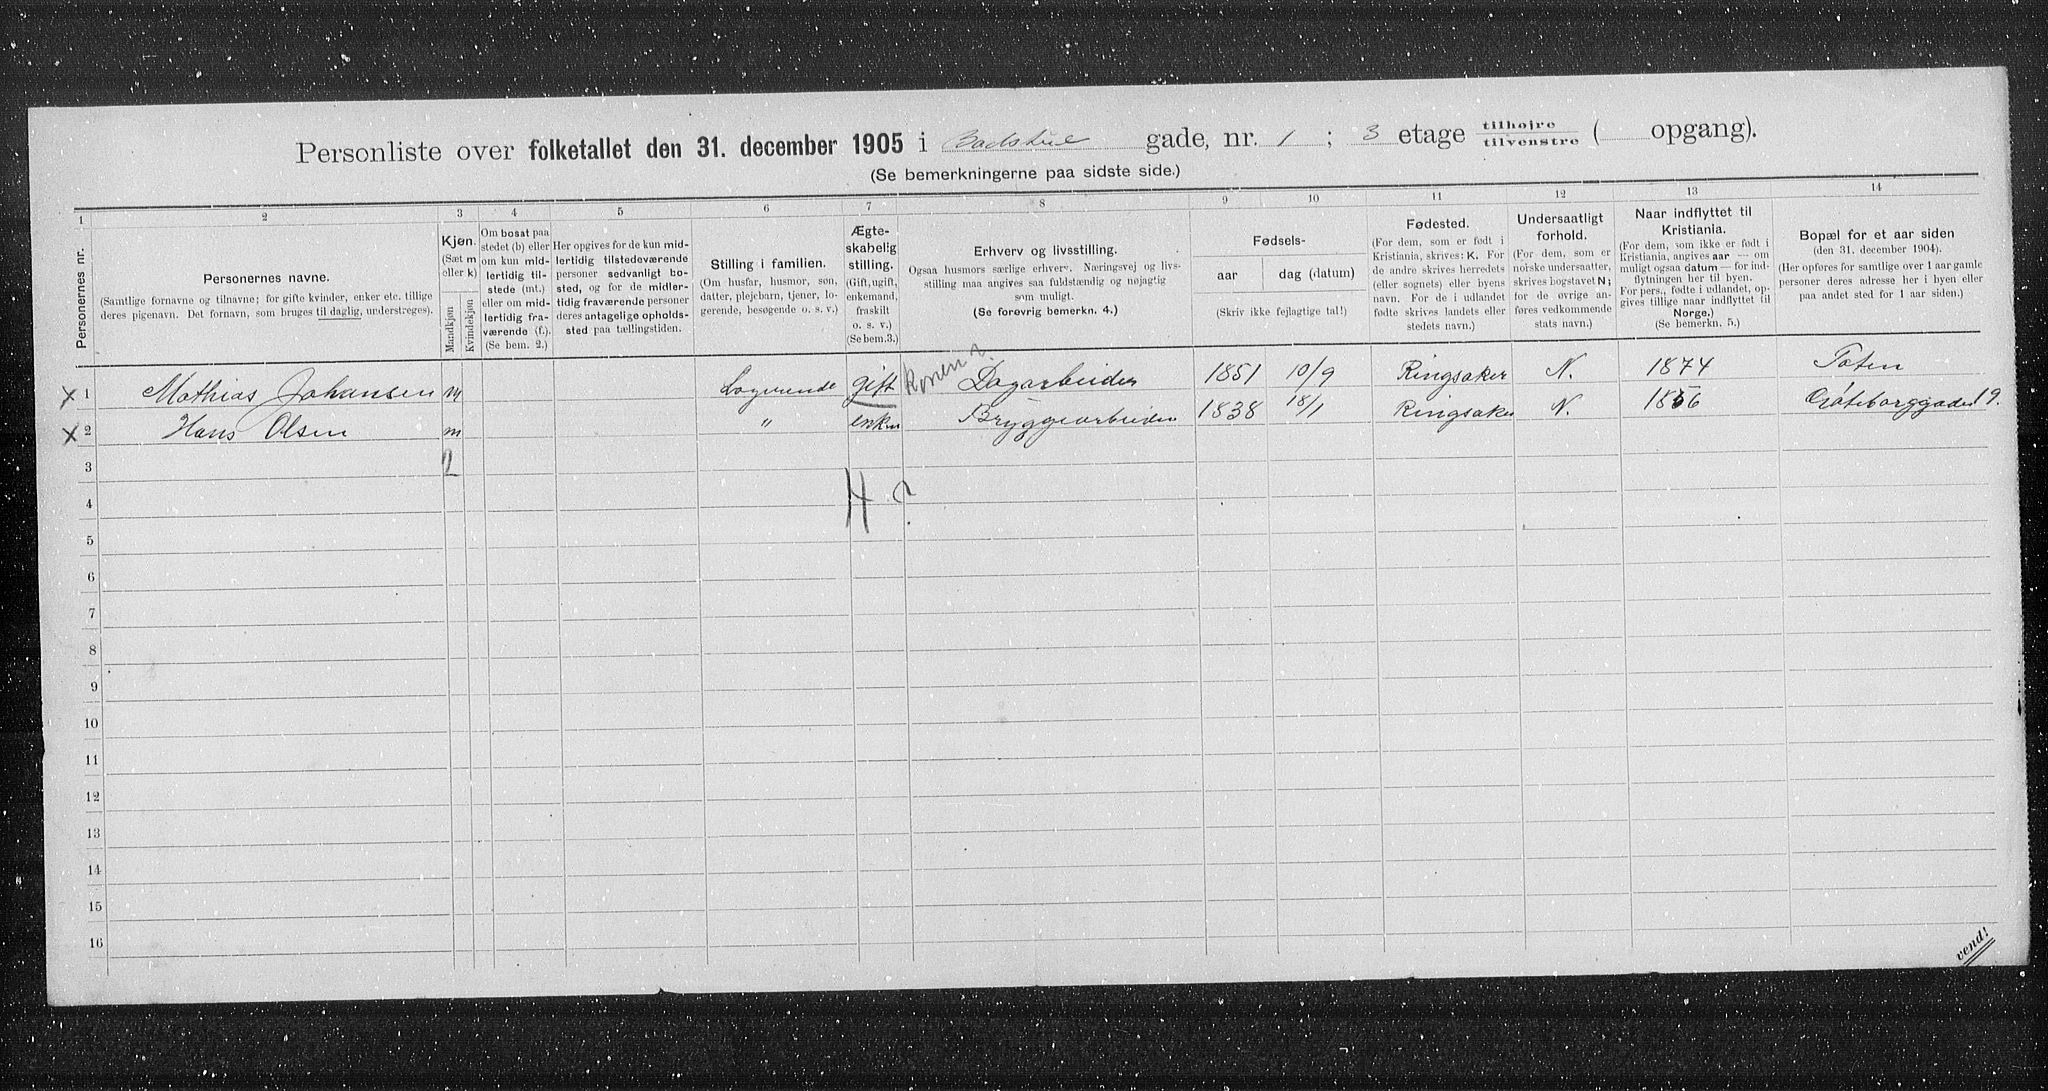 Personliste over folketallet den 31. december 1905 i Badstue gade, nr. 1 ; 3 etage tilhøjre / tilvenstre ( opgang).
(Se bemerkningerne paa sidste side.)
1 2 3 4 5 6 7 8 9 10 11 12 13 14
Personernes nr.
Personernes navne.
(Samtlige fornavne og tilnavne; for gifte kvinder, enker etc. tillige
deres pigenavn. Det fornavn, som bruges til daglig, understreges).
Kjøn.
(Sæt m
eller k)
Mandkjøn
Kvindekjøn
Om bosat paa
stedet (b) eller
om kun mid-
lertidig til-
stede (mt.)
eller om mid-
lertidig fra-
værende (f.).
(Se bem. 2.)
Her opgives for de kun mid-
lertidig tilstedeværende
personer sedvanligt bo-
sted, og for de midler-
tidig fraværende personer
deres antagelige opholds-
sted paa tællingstiden.
Stilling i familien.
(Om husfar, husmor, søn,
datter, plejebarn, tjener, lo-
gerende, besøgende o. s. v.)
Ægte-
skabelig
stilling.
(Gift, ugift,
enkemand,
fraskilt
o. s. v.)
(Se bem. 3.)
Erhverv og livsstilling.
Ogsaa husmors særlige erhverv. Næringsvej og livs-
stilling maa angives saa fuldstændig og nøjagtig
som muligt.
(Se forøvrig bemerkn. 4.)
Fødsels-
aar dag (datum)
(Skriv ikke fejlagtige tal!)
Fødested.
(For dem, som er født i
Kristiania, skrives: K. For
de andre skrives herredets
(eller sognets) eller byens
navn. For de i udlandet
fødte skrives landets eller
stedets navn.)
Undersaatligt
forhold.
(For dem, som er
norske undersaatter,
skrives bogstavet N;
for de øvrige an-
føres vedkommende
stats navn.)
Naar indflyttet til
Kristiania.
(For dem, som ikke er født i
Kristiania, angives aar — om
muligt ogsaa datum — for ind-
flytningen her til byen.
For pers., fødte i udlandet, op-
gives tillige naar indflyttet til
Norge.)
(Se bemerkn. 5.)
Bopæl for et aar siden
(den 31. december 1904).
(Her opføres for samtlige over 1 aar gamle
personer deres adresse her i byen eller
paa andet sted for 1 aar siden.)
x 1 Mathias Johansen m Logerende gift Konen? Dagarbeider 1851 10/9 Ringsaker N. 1874 Toten
x 2 Hans Olsen m " enkm Bryggearbeider 1838 18/1 Ringsaker N. Göteborggaden 19.
3 2
4 H ?
5
6
7
8
9
10
11
12
13
14
15
16
vend!